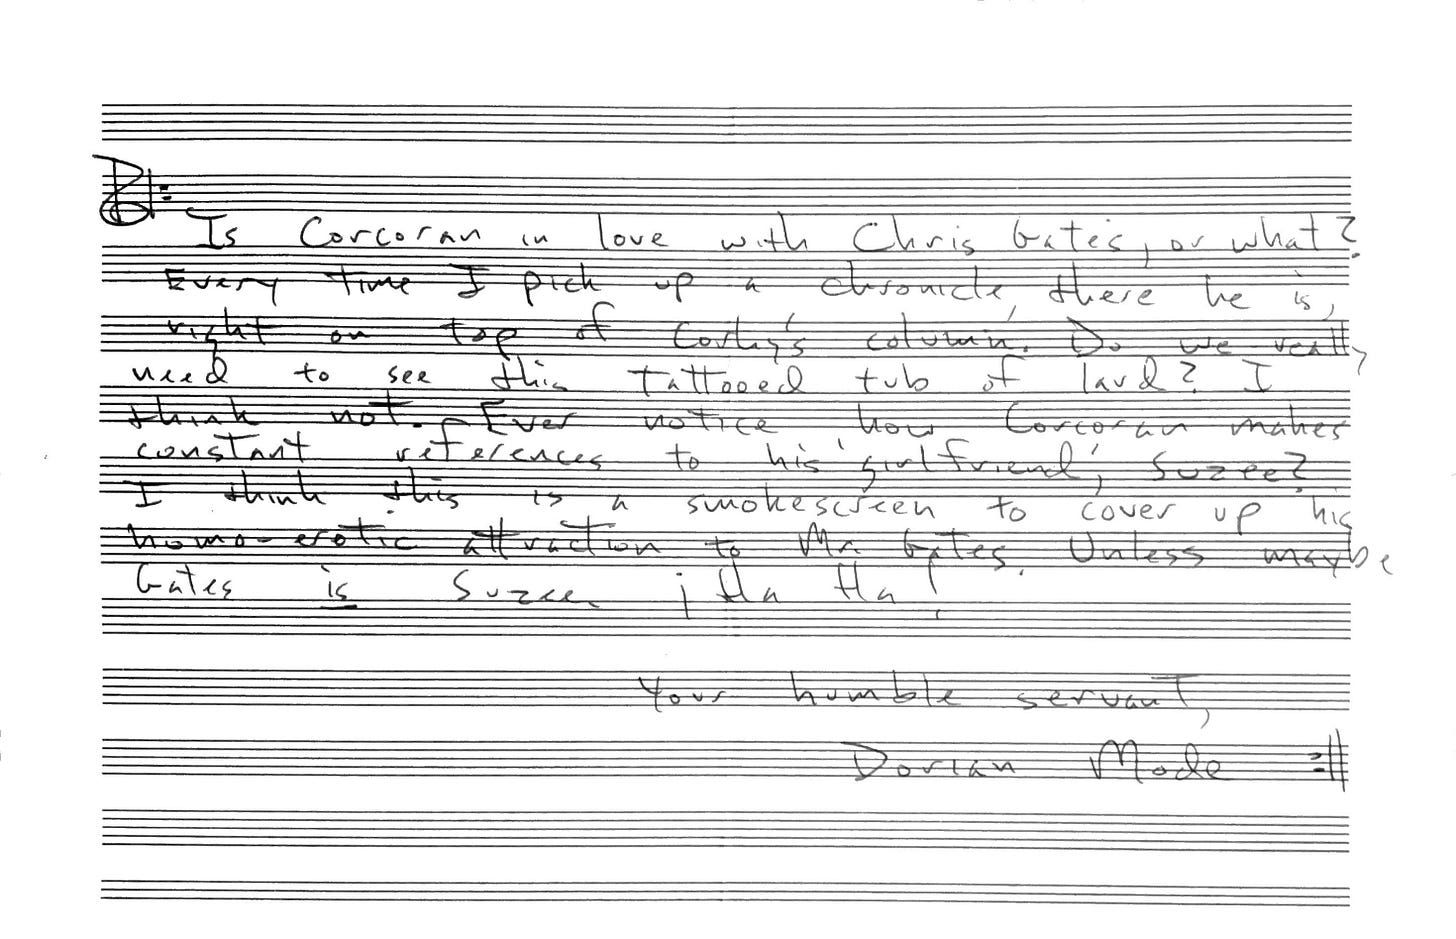 Is Corcoran in love with Chris Gates, or what?
Every time I pick up a chronicle, there he is,
right on top of Corky's 'column'. Do we really
need to see this tattooed tub of lard? I
think not. Ever notice how Corcoran makes
constant references to his 'girlfriend', Suzee?
I think this is a smokescreen to cover up his
homo-erotic attraction to Mr. Gates. Unless maybe
Gates is Suzee. ¡Ha Ha!
Your humble servant,
Dorian Mode